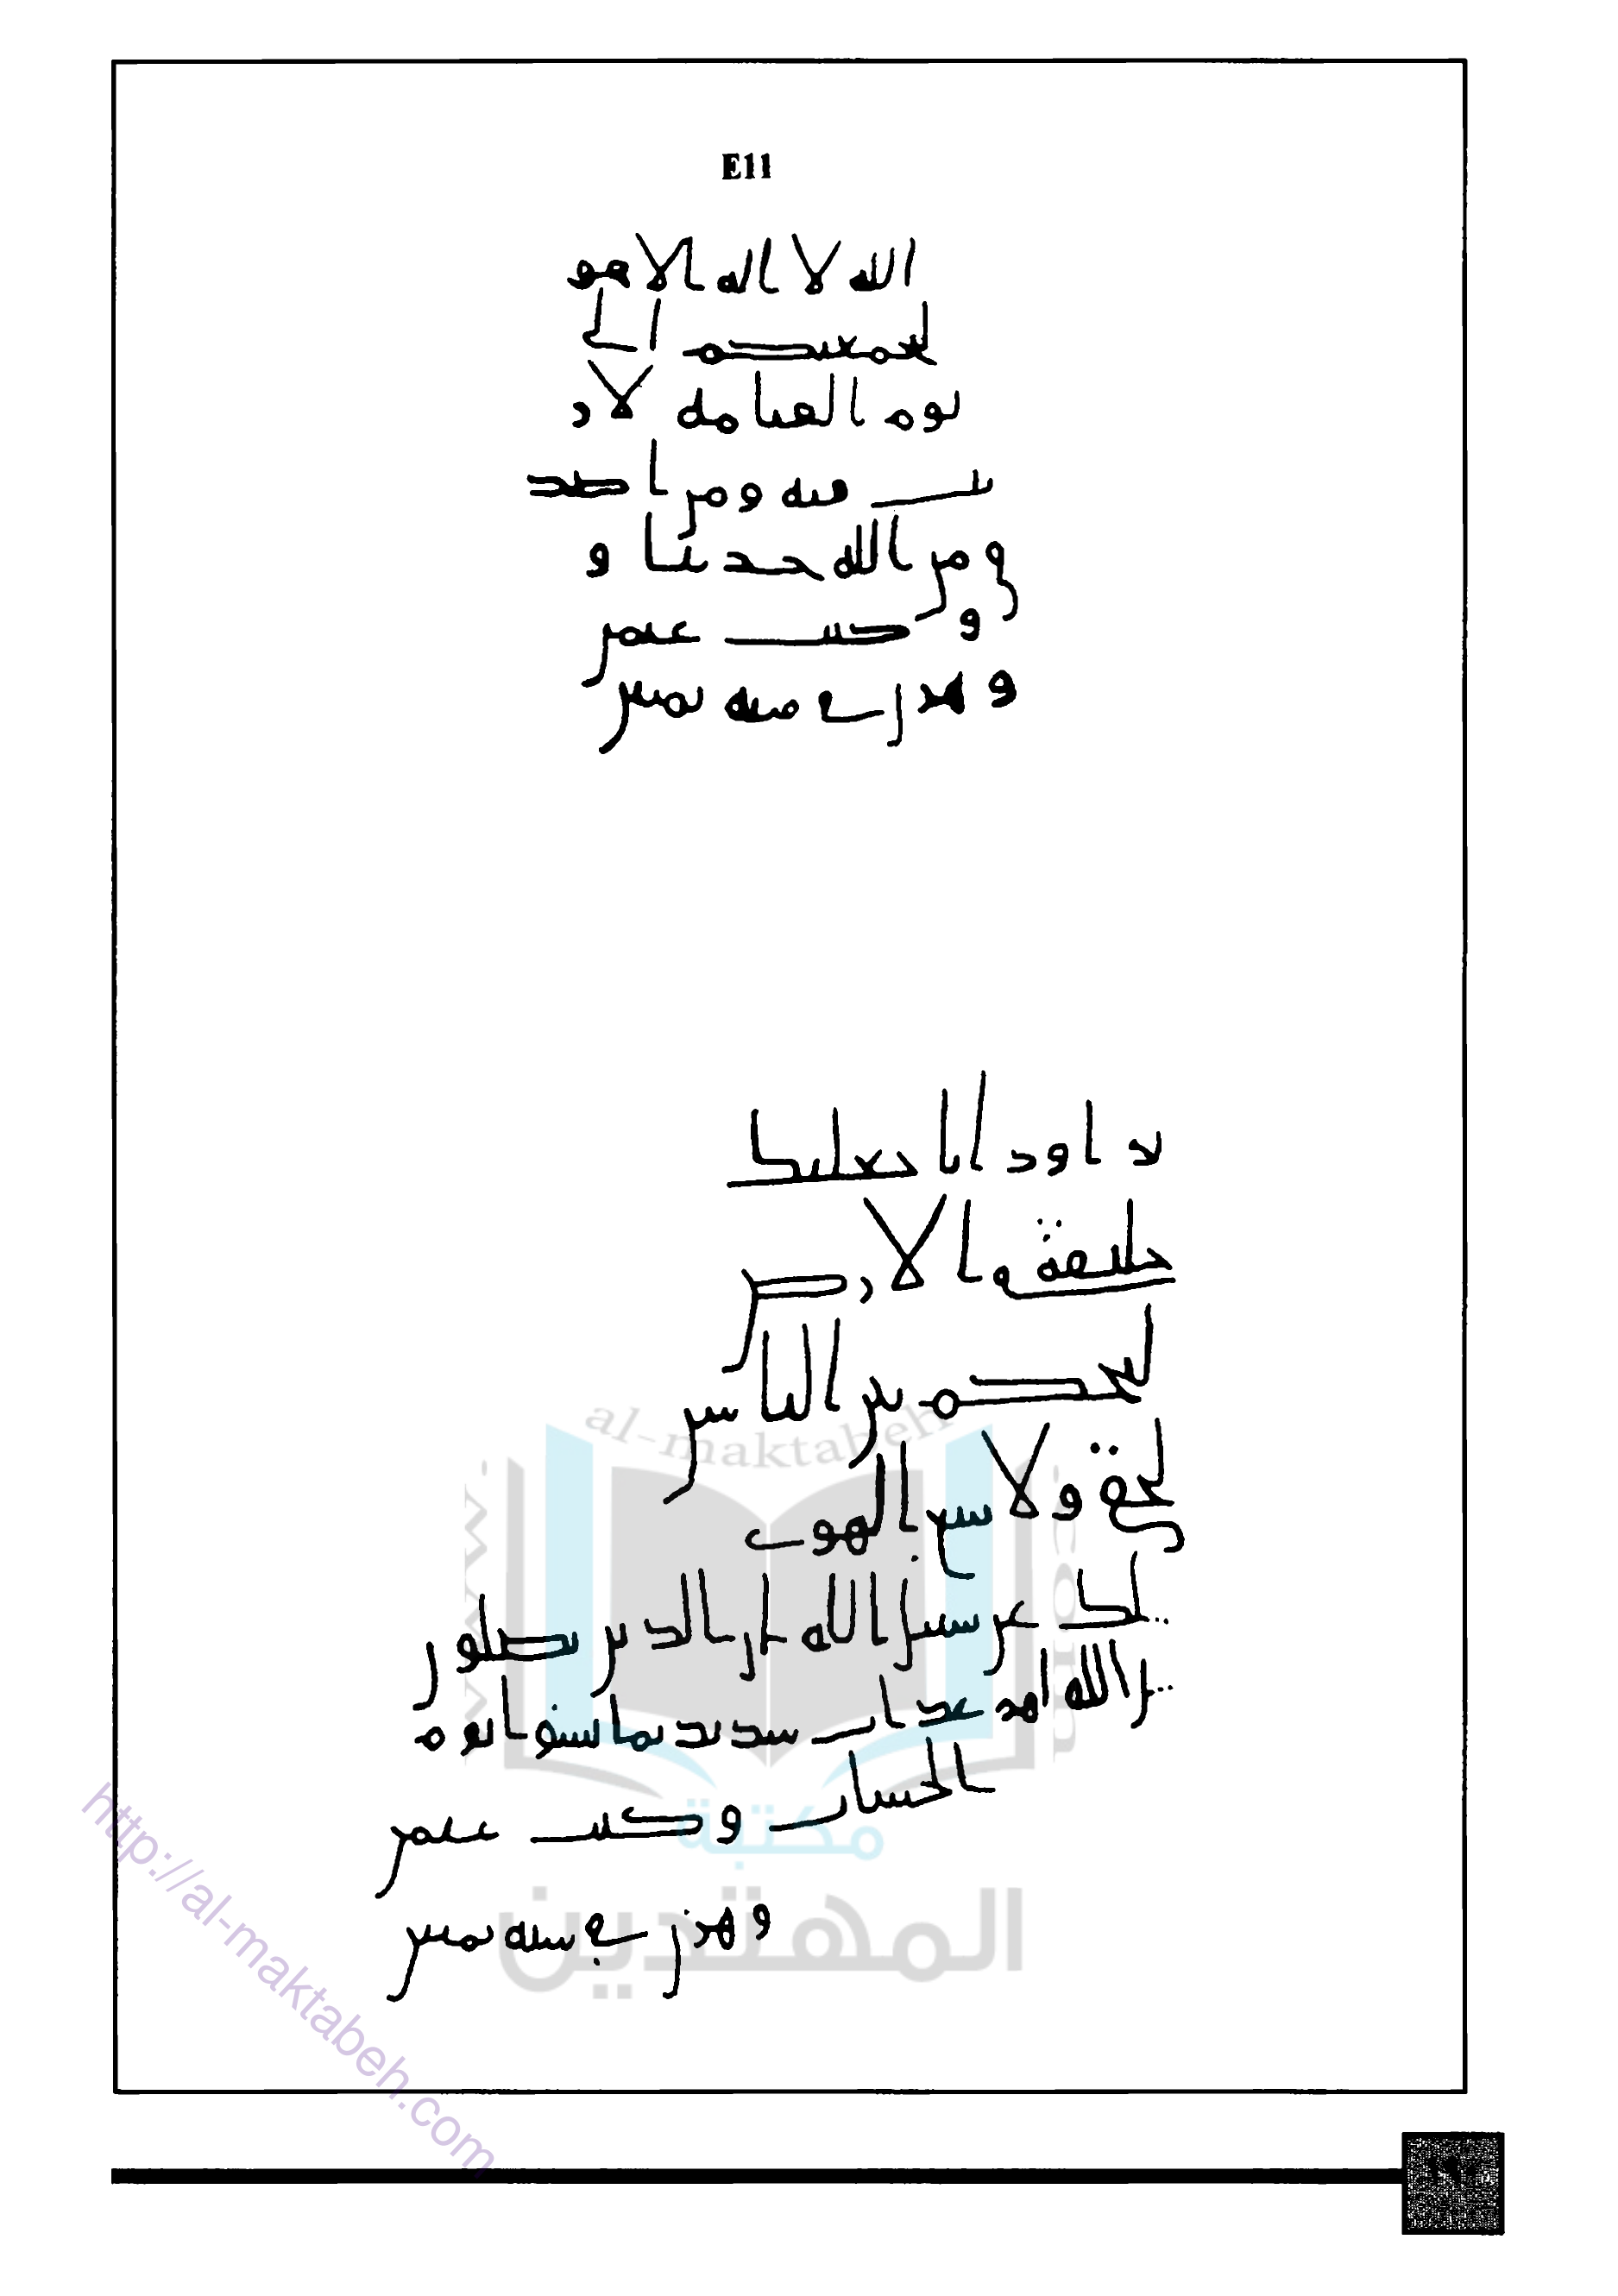 E11
الله لا اله الا هو
ليجمعنكم الى
يوم القيامه لا ر
يب فيه ومن اصد
ق من الله حديثا و
وكتب عمر
و هو ابن سنه ثمنين
يداود انا جعلنك
خليفة في الارض
لتحكم بين الناس
لحق ولا تتبع الهوى
يضلك عن سبيل الله ان الذين يضلون
عن سبيل الله لهم عذاب شديد بما نسوا يوم
الحساب وكتب عمر
في سنه ثمنين
al-maktabeh
مكتبة
المهتدين
http://al-maktabeh.com